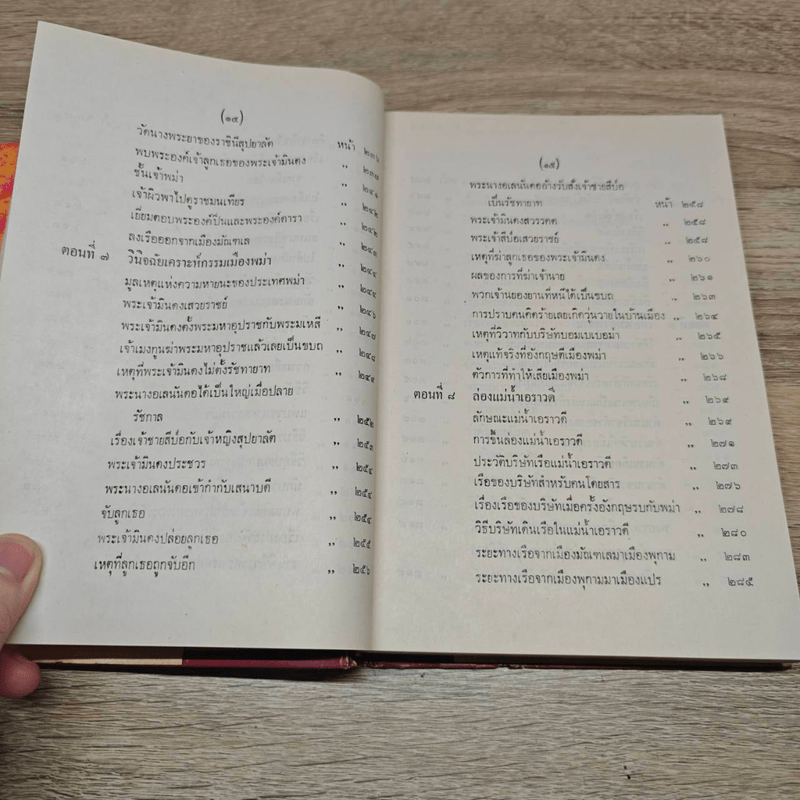 (๑๔)
หน้า
วัดนางพระยาของราชินีสุปยาลัต ,, ๒๓๖
พบพระองค์เจ้าลูกเธอของพระเจ้ามินดง ,,
ชั้นเจ้าพม่า ,,
เจ้าผิวพาไปดูราชมนเทียร ,, ๒๔๒
เยี่ยมตอบพระองค์ปิ่นและพระองค์ดารา ,, ๒๔๒
ลงเรือออกจากเมืองมัณฑเล ,,
ตอนที่ ๗ วินิจฉัยเคราะห์กรรมเมืองพม่า ,, ๒๔๔
มูลเหตุแห่งความหายนะของประเทศพม่า ,, ๒๔๔
พระเจ้ามินดงเสวยราชย์ ,, ๒๔๖
พระเจ้ามินดงตั้งพระมหาอุปราชกับพระมเหสี ,, ๒๔๗
เจ้าเมงกูนฆ่าพระมหาอุปราชแล้วเลยเป็นขบถ ,, ๒๔๘
เหตุที่พระเจ้ามินดงไม่ตั้งรัชทายาท ,, ๒๔๙
พระนางอเลนันดอได้เป็นใหญ่เมื่อปลาย
รัชกาล ,, ๒๕๒
เรื่องเจ้าชายสีป่อกับเจ้าหญิงสุปยาลัต ,, ๒๕๓
พระเจ้ามินดงประชวร ,, ๒๕๔
พระนางอเลนันดอเข้ากำกับเสนาบดี ,, ๒๕๔
จับลูกเธอ ,, ๒๕๔
พระเจ้ามินดงปล่อยลูกเธอ ,, ๒๕๕
เหตุที่ลูกเธอถูกจับอีก ,, ๒๕๖
(๑๕)
พระนางอเลนันดออ้างรับสั่งเจ้าชายสีป่อ
เป็นรัชทายาท หน้า ๒๕๘
พระเจ้ามินดงสวรรคต ,, ๒๕๘
พระเจ้าสีป่อเสวยราชย์ ,, ๒๕๘
เหตุที่ฆ่าลูกเธอของพระเจ้ามินดง ,, ๒๖๐
ผลของการที่ฆ่าเจ้านาย ,, ๒๖๑
พวกเจ้านยองยานที่หนีได้เป็นขบถ ,, ๒๖๓
การปราบคนคิดร้ายเลยเกิดวุ่นวายในบ้านเมือง ,, ๒๖๔
เหตุที่วิวาทกับบริษัทบอมเบเบอม่า ,, ๒๖๕
เหตุแท้จริงที่อังกฤษตีเมืองพม่า ,, ๒๖๖
ตัวการที่ทำให้เสียเมืองพม่า ,, ๒๖๘
ตอนที่ ๘ ล่องแม่น้ำเอราวดี ,, ๒๖๙
ลักษณะแม่น้ำเอราวดี ,, ๒๖๙
การขึ้นล่องแม่น้ำเอราวดี ,, ๒๗๑
ประวัติบริษัทเรือแม่น้ำเอราวดี ,, ๒๗๓
เรือของบริษัทสำหรับคนโดยสาร ,, ๒๗๖
เรื่องเรือของบริษัทเมื่อครั้งอังกฤษรบกับพม่า ,, ๒๗๘
วิธีบริษัทเดินเรือในแม่น้ำเอราวดี ,, ๒๘๐
ระยะทางเรือจากเมืองมัณฑเลมาเมืองพุกาม ,, ๒๘๓
ระยะทางเรือจากเมืองพุกามมาเมืองแปร ,, ๒๘๕